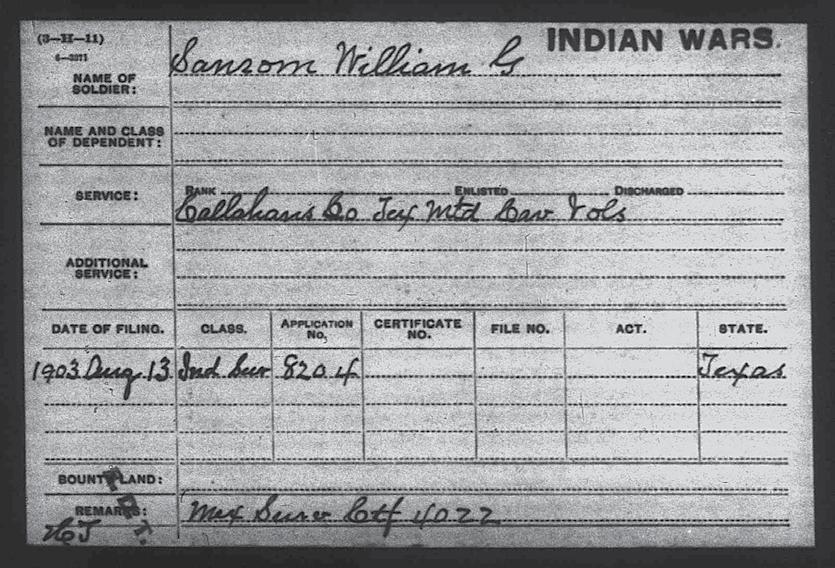 (3—H—11)
6—3071
INDIAN WARS.
NAME OF SOLDIER: Sansom William G
NAME AND CLASS OF DEPENDENT:
SERVICE: RANK ENLISTED DISCHARGED
Callahans Co Tex Mtd Cav Vols
ADDITIONAL SERVICE:
DATE OF FILING. CLASS. APPLICATION No. CERTIFICATE NO. FILE NO. ACT. STATE.
1903 Aug 13 Ind Sur 8204 Texas
BOUNTY LAND:
REMARKS: Mex Surv Ctf 4022